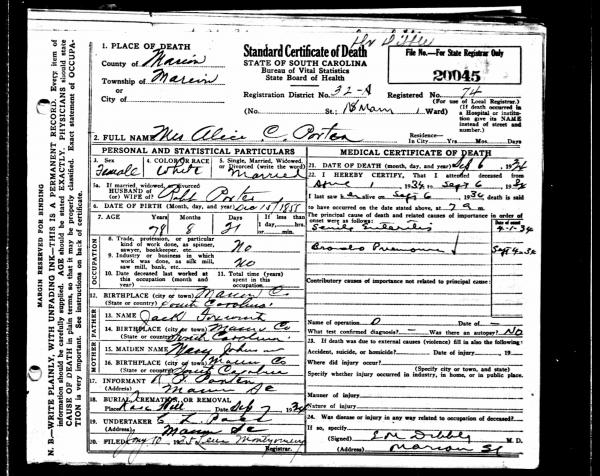 Dr Dibble
1. PLACE OF DEATH
County of Marion
Township of Marion
or
City of
Standard Certificate of Death
STATE OF SOUTH CAROLINA
Bureau of Vital Statistics
State Board of Health
Registration District No. 32-A
(No. St.; Ward)
File No.—For State Registrar Only
20045
Registered No. 74
(For use of Local Registrar.)
(If death occurred in
a Hospital or institu-
tion give its NAME
instead of street and
number.)
2. FULL NAME Mrs Alice C. Porter
Residence—
In City Yrs. Mos. Days
MARGIN RESERVED FOR BINDING
N. B.—WRITE PLAINLY, WITH UNFADING INK—THIS IS A PERMANENT RECORD. Every item of
information should be carefully supplied. AGE should be stated EXACTLY. PHYSICIANS should state
CAUSE OF DEATH in plain terms, so that it may be properly classified. Exact statement of OCCUPA-
TION is very important.
PERSONAL AND STATISTICAL PARTICULARS
3. Sex
Female
4. COLOR OR RACE
White
5. Single, Married, Widowed,
or Divorced (write the word)
Married
5a. If married, widowed, or divorced
HUSBAND of
(or) WIFE of Robt Porter
6. DATE OF BIRTH (Month, day, and year) Dec 15 1855
7. AGE Years Months Days If less than
1 day, hrs.
or min.
78 8 21
OCCUPATION
8. Trade, profession, or particular
kind of work done, as spinner,
sawyer, bookkeeper, etc. No
9. Industry or business in which
work was done, as silk mill,
saw mill, bank, etc. No
10. Date deceased last worked at
this occupation (month and
year)
11. Total time (years)
spent in this
occupation
12. BIRTHPLACE (city or town) Marion Co
(State or country) South Carolina
FATHER
13. NAME Jack
14. BIRTHPLACE (city or town) Marion Co
(State or country) South Carolina
MOTHER
15. MAIDEN NAME Mary
16. BIRTHPLACE (city or town) Marion Co
(State or country) South Carolina
17. INFORMANT R. P. Porter
(Address) Marion SC
18. BURIAL, CREMATION, OR REMOVAL
Place Rose Hill Date Sep 7 1934
19. UNDERTAKER
(Address) Marion SC
20. FILED 10 Montgomery
Registrar.
MEDICAL CERTIFICATE OF DEATH
21. DATE OF DEATH (month, day, and year) Sep 6 1934
22. I HEREBY CERTIFY, That I attended deceased from
June 1 1934 to Sept 6 1934
I last saw h alive on Sept 6 1934 death is said
to have occurred on the date stated above, at 7 a m
The principal cause of death and related causes of importance in order of
onset were as follows: Date of onset
4-1-34
Broncho Pneumonia Sept 4-34
Contributory causes of importance not related to principal cause:
Name of operation 0 Date of
What test confirmed diagnosis? Was there an autopsy? NO
23. If death was due to external causes (violence) fill in also the following:
Accident, suicide, or homicide? Date of injury 19
Where did injury occur?
(Specify city or town, and state)
Specify whether injury occurred in industry, in home, or in public place.
Manner of injury
Nature of injury
24. Was disease or injury in any way related to occupation of deceased?
If so, specify
(Signed) Dibble M. D.
(Address) Marion SC